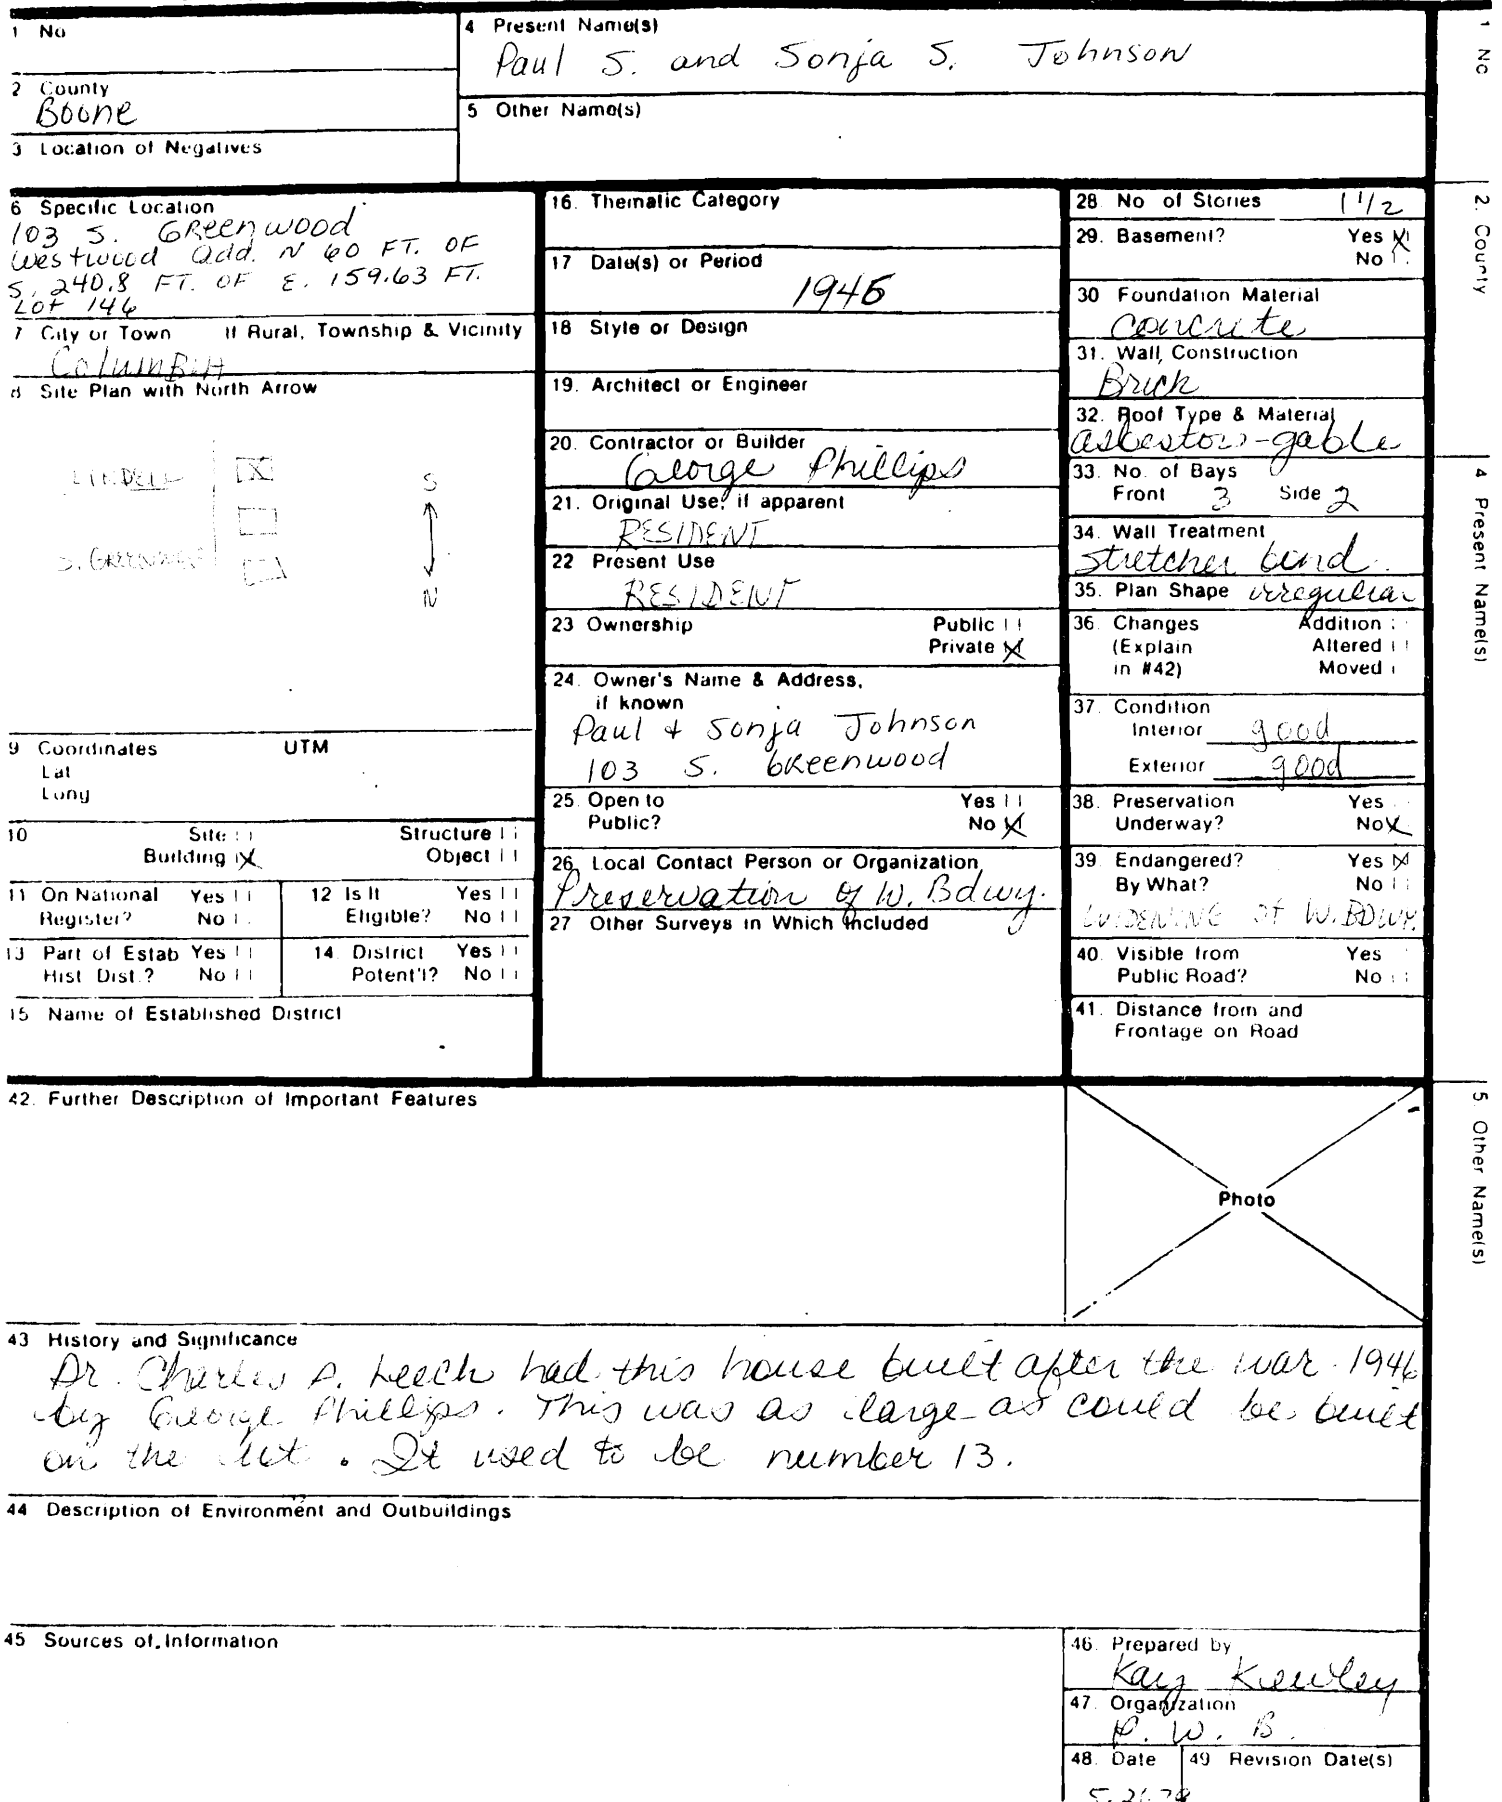 1 No
2 County
Boone
3 Location of Negatives
4 Present Name(s)
Paul S. and Sonja S. Johnson
5 Other Name(s)
6 Specific Location
103 S. Greenwood
Westwood Add. N 60 FT. OF
S. 240.8 FT. OF E. 159.63 FT.
Lot 146
7 City or Town If Rural, Township & Vicinity
Columbia
8 Site Plan with North Arrow
LINDELL
X
S. GREENWOOD
S
N
9 Coordinates UTM
Lat
Long
10 Site
Structure
Building X
Object
11 On National Register? Yes No
12 Is It Eligible? Yes No
13 Part of Estab Hist Dist.? Yes No
14 District Potent'l? Yes No
15 Name of Established District
16. Thematic Category
17 Date(s) or Period
18 Style or Design
19. Architect or Engineer
20. Contractor or Builder
George Phillips
21. Original Use, if apparent
RESIDENT
22 Present Use
RESIDENT
23 Ownership Public
Private X
24. Owner's Name & Address,
if known
Paul + Sonja Johnson
103 S. Greenwood
25. Open to Yes
Public? No X
26. Local Contact Person or Organization
Preservation of W. Bdwy.
27 Other Surveys in Which Included
28. No of Stories 1 1/2
29. Basement? Yes X
No
30 Foundation Material
Concrete
31. Wall Construction
Brick
32. Roof Type & Material
asbestos-gable
33. No. of Bays
Front 3 Side 2
34. Wall Treatment
Stretcher bond
35. Plan Shape irregular
36. Changes Addition
(Explain Altered
in #42) Moved
37. Condition
Interior good
Exterior good
38. Preservation Yes
Underway? No X
39. Endangered? Yes X
By What? No
WIDENING OF W. BDWY.
40. Visible from Yes
Public Road? No
41. Distance from and
Frontage on Road
42. Further Description of Important Features
Photo
43 History and Significance
Dr. Charles A. Leech had this house built after the war 1946
by George Phillips. This was as large as could be built
on the lot. It used to be number 13.
44 Description of Environment and Outbuildings
45 Sources of Information
46. Prepared by
Kay
47. Organization
P. W. B.
48. Date
49 Revision Date(s)
1 No
2. County
4 Present Name(s)
5. Other Name(s)